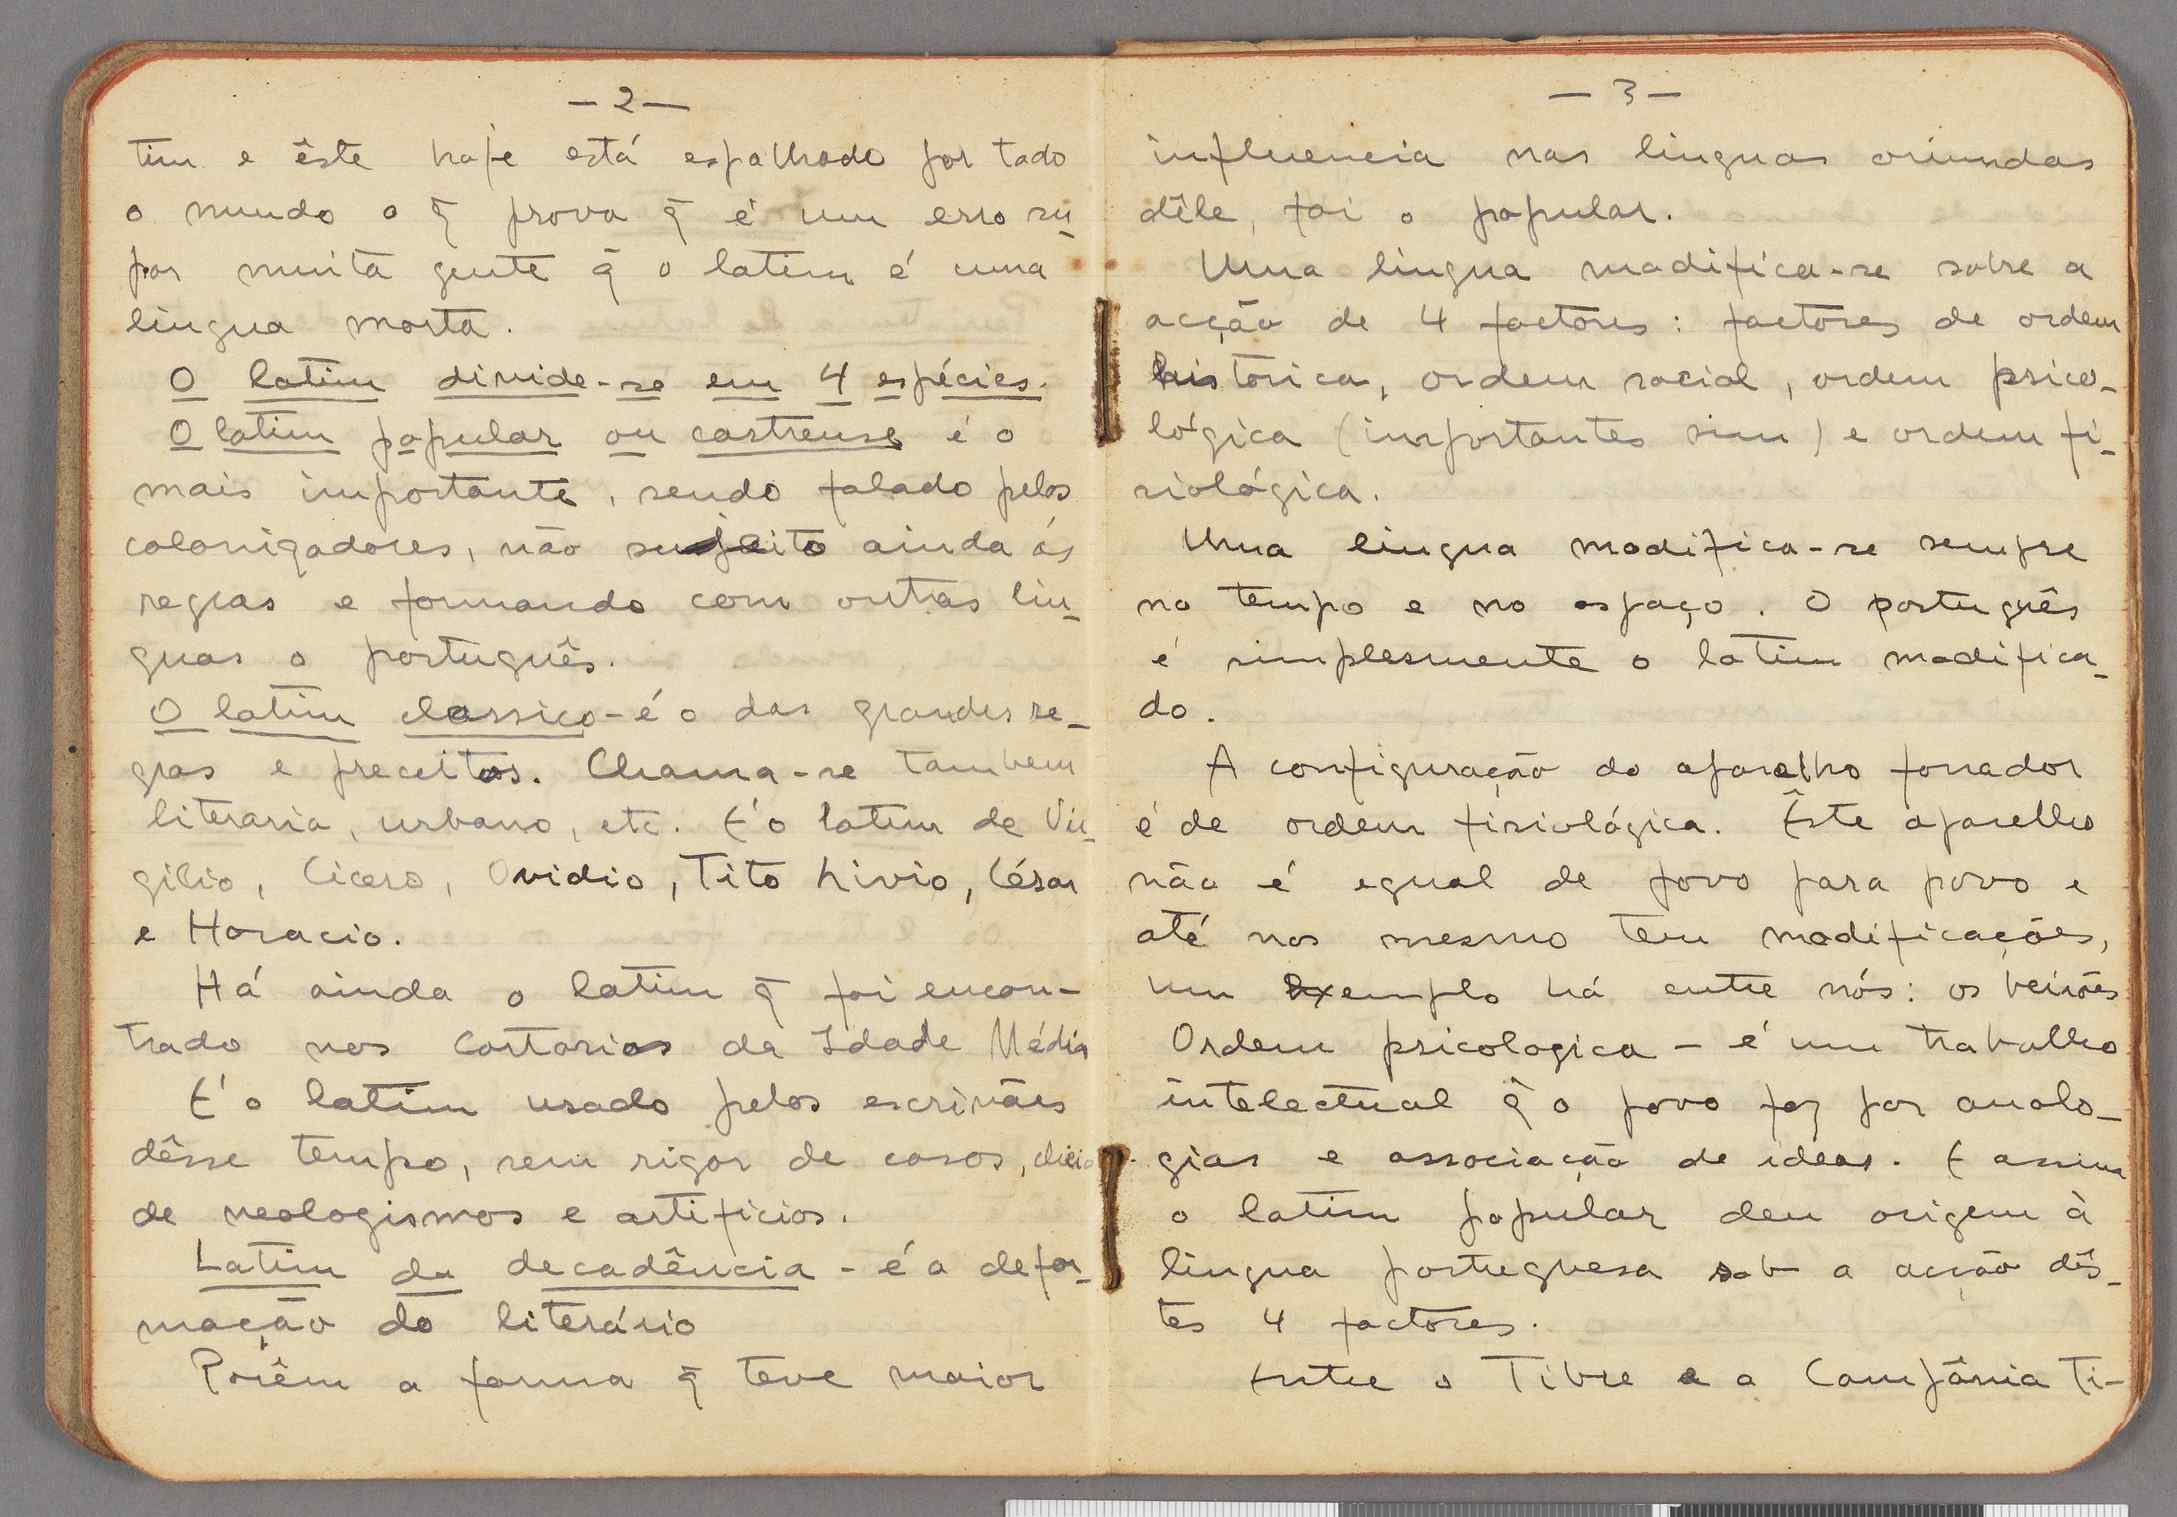 — 2 —
tim e êste hoje está espalhado por todo
o mundo o q̃ prova q̃ é um erro su-
por muita gente q̃ o latim é uma
lingua morta.
O latim divide-se em 4 espécies.
O latim popular ou castrense é o
mais importante, sendo falado pelos
colonizadores, não sujeito ainda ás
regras e formando com outras lin-
guas o português.
O latim classico - é o das grandes re-
gras e preceitos. Chama-se tambem
literaria, urbano, etc. É o latim de Vir-
gilio, Cicero, Ovidio, Tito Livio, César
e Horacio.
Há ainda o latim q̃ foi encon-
trado nos Cartorios da Idade Média
É o latim usado pelos escrivães
dêsse tempo, sem rigor de casos,
de neologismos e artificios.
Latim da decadência - é a defor-
mação do literário
Porêm a forma q̃ teve maior
— 3 —
influencia nas linguas oriundas
dêle, foi o popular.
Uma lingua modifica-se sobre a
acção de 4 factores: factores de ordem
historica, ordem social, ordem psico-
lógica (importantes sim) e ordem fi-
siológica.
Uma lingua modifica-se sempre
no tempo e no espaço. O português
é simplesmente o latim modifica-
do.
A configuração do aparelho fonador
é de ordem fisiológica. Êste aparelho
não é egual de povo para povo e
até nos mesmo tem modificações,
um exemplo há entre nós: os beirões
Ordem psicologica - é um trabalho
intelectual q̃ o povo faz por analo-
gias e associação de ideas. E assim
o latim popular deu origem à
lingua portuguesa sob a acção dês-
tes 4 factores.
Entre o Tibre e a Campânia ti-